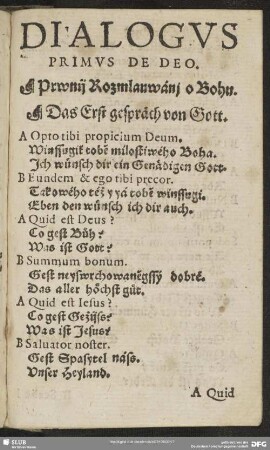 DIALOGVS
PRIMVS DE DEO.
¶ Prwnij Rozmlauwánj o Bohu.
¶ Das Erst gespräch von Gott.
A Opto tibi propicium Deum.
Winssugik tobě miloskiwého Boha.
Ich wünsch dir ein Genädigen Gott.
B Eundem & ego tibi precor.
Takowého též y yá tobě winssugi.
Eben den wünsch ich dir auch.
A Quid est Deus?
Co gest Bůh?
Was ist Gott?
B Summum bonum.
Gest neyswrchowaněgssý dobré.
Das aller höchst gůt.
A Quid est Iesus?
Co gest Gežijss?
Was ist Jesus?
B Saluator noster.
Gest Spasytel náss.
Vnser Heyland.
A Quid
SLUB
DFG